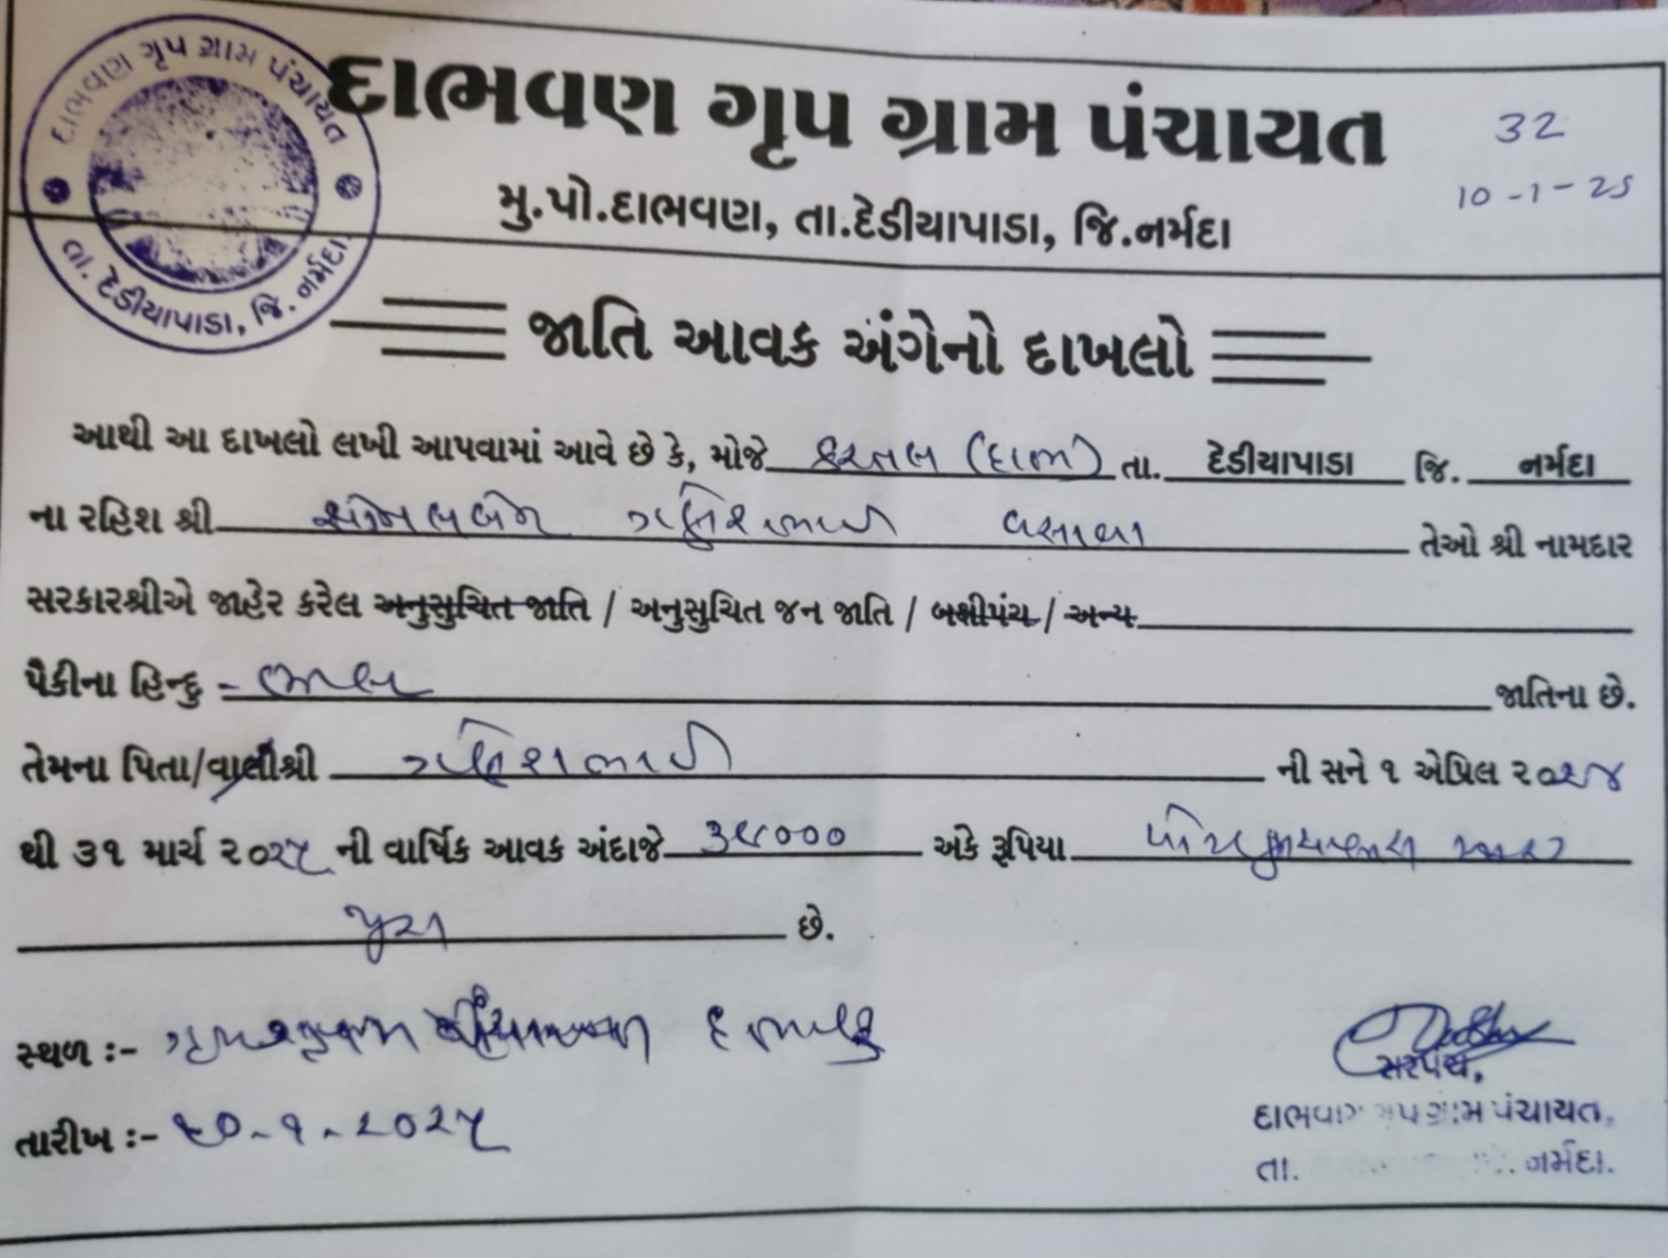 દાભવણ ગૃપ ગ્રામ પંચાયત
તા. દેડીયાપાડા, જિ. નર્મદા
દાભવણ ગૃપ ગ્રામ પંચાયત
32
મુ.પો.દાભવણ, તા.દેડીયાપાડા, જિ.નર્મદા
10-1-25
જાતિ આવક અંગેનો દાખલો
આથી આ દાખલો લખી આપવામાં આવે છે કે, મોજે (દાભ) તા. દેડીયાપાડા જિ. નર્મદા
ના રહિશ શ્રી વસાવા તેઓ શ્રી નામદાર
સરકારશ્રીએ જાહેર કરેલ અનુસુચિત જાતિ / અનુસુચિત જન જાતિ / બક્ષીપંચ / અન્ય
પૈકીના હિન્દુ - જાતિના છે.
તેમના પિતા/વાલીશ્રી ની સને ૧ એપ્રિલ ૨૦૨૪
થી ૩૧ માર્ચ ૨૦૨૫ ની વાર્ષિક આવક અંદાજે ૩૫૦૦૦ અંકે રૂપિયા
પુરા છે.
સ્થળ :-
તારીખ :- ૧૦-૧-૨૦૨૫
સરપંચ,
દાભવણ ગૃપ ગ્રામ પંચાયત,
તા. નર્મદા.